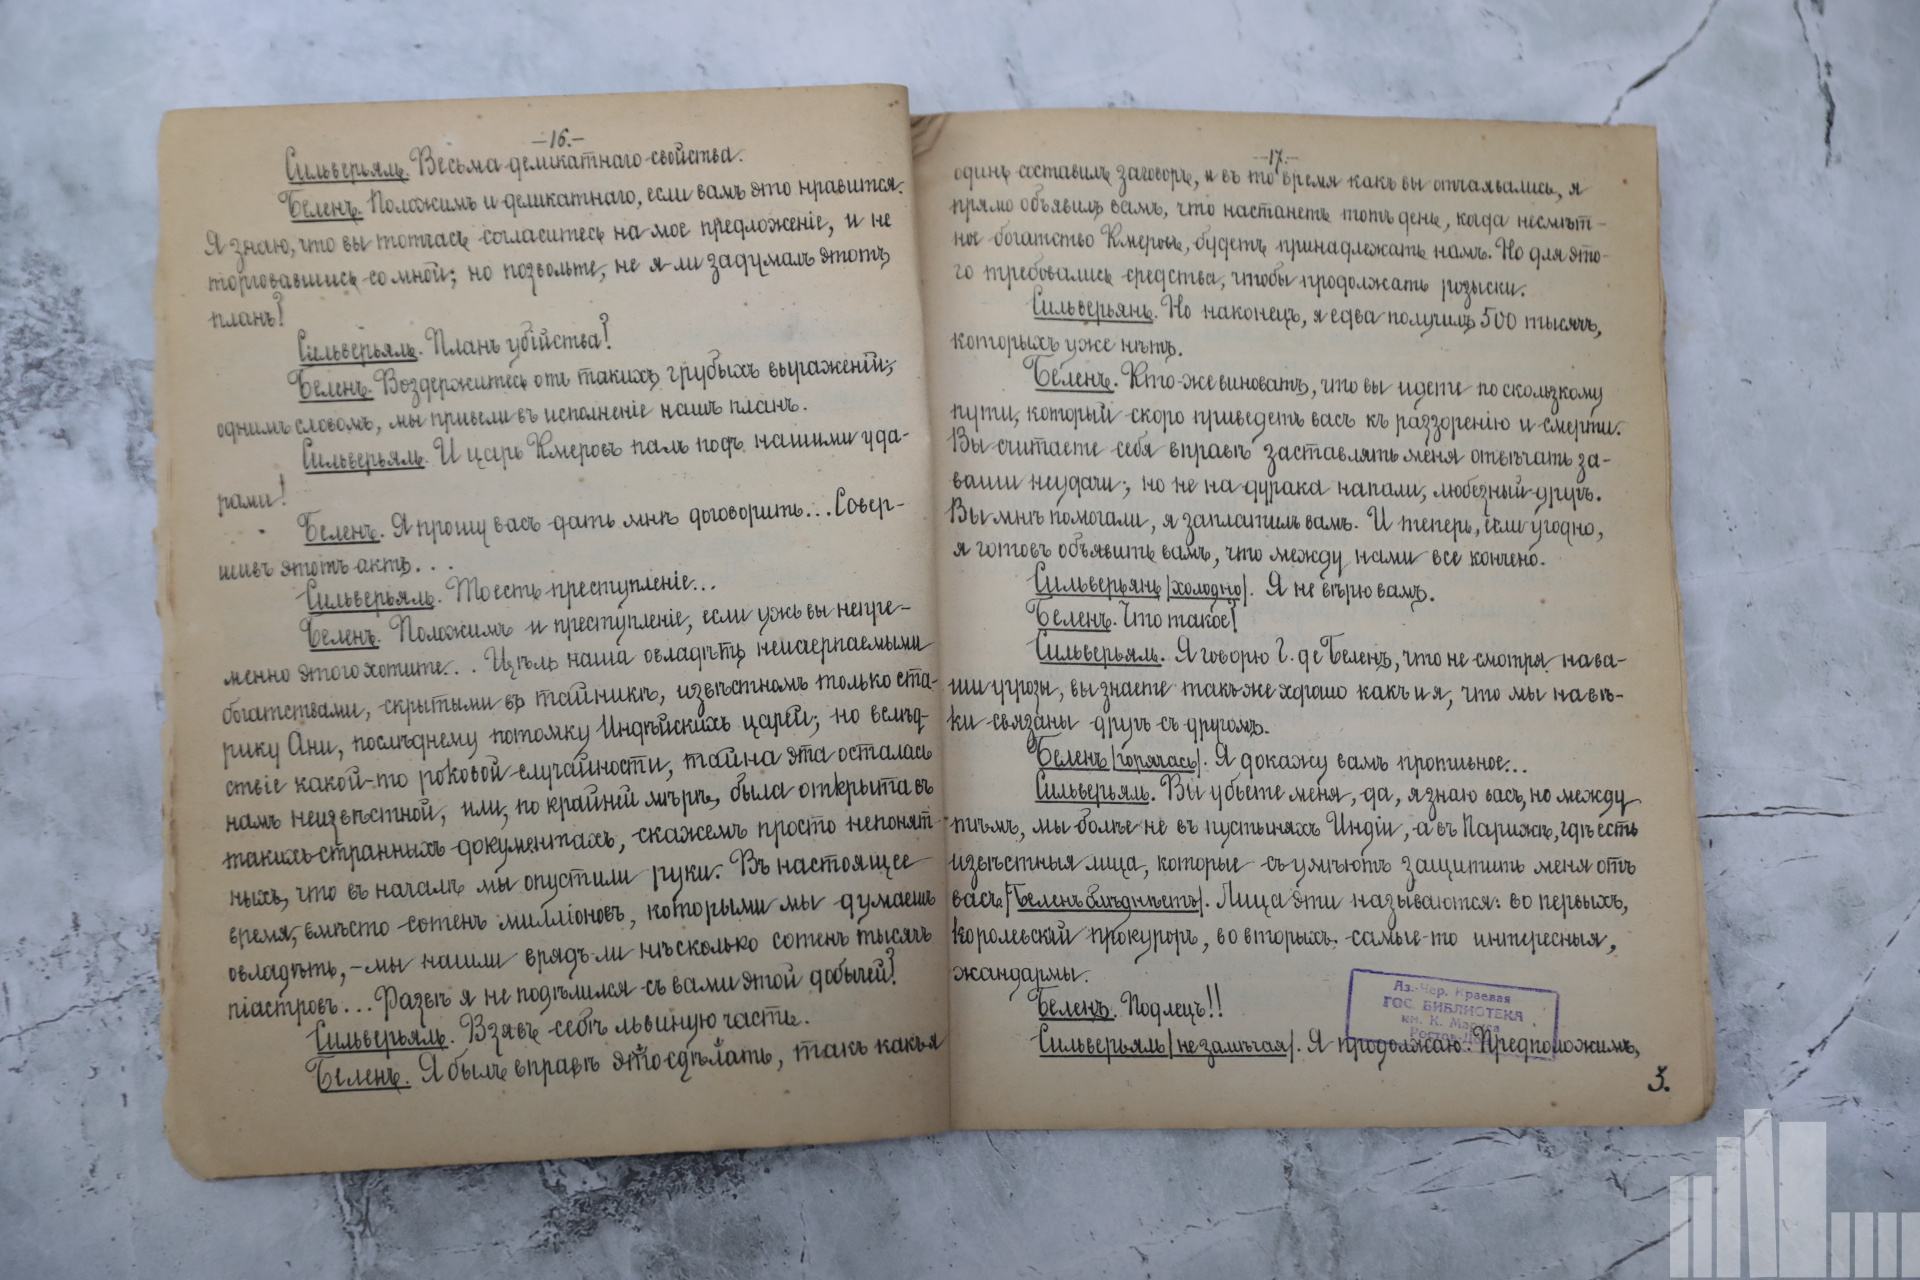 —16.—
Сильверьялъ. Весьма деликатнаго свойства.
Беленъ. Положимъ и деликатнаго, если вамъ это нравится.
Я знаю, что вы тотчасъ согласитесь на мое предложеніе, и не
торговавшись со мной; но позвольте, не я ли задумалъ этотъ
планъ?
Сильверьялъ. Планъ убійства?
Беленъ. Воздержитесь отъ такихъ грубыхъ выраженій;
однимъ словомъ, мы привели въ исполненіе нашъ планъ.
Сильверьялъ. И царь Кмеровъ палъ подъ нашими уда-
рами!
Беленъ. Я прошу васъ дать мнѣ договорить... Совер-
шивъ этотъ актъ...
Сильверьялъ. Тоесть преступленіе...
Беленъ. Положимъ и преступленіе, если ужъ вы непре-
менно этого хотите... Цѣль наша овладѣть неисчерпаемыми
богатствами, скрытыми въ тайникѣ, извѣстномъ только ста-
рику Ани, послѣднему потомку Индѣйскихъ царей; но вслѣд-
ствіе какой-то роковой случайности, тайна эта осталась
намъ неизвѣстной, или, по крайней мѣрѣ, была открыта въ
такихъ странныхъ документахъ, скажемъ просто непонят-
ныхъ, что въ началѣ мы опустили руки. Въ настоящее
время, вмѣсто сотенъ милліоновъ, которыми мы думаемъ
овладѣть, —мы нашли врядъ-ли нѣсколько сотенъ тысячъ
піастровъ... Развѣ я не подѣлился съ вами этой добычей?
Сильверьялъ. Взявъ себѣ львиную часть.
Беленъ. Я былъ вправѣ это сдѣлать, такъ какъ я
—17.—
одинъ составилъ заговоръ, и въ то время какъ вы отчаявались, я
прямо объявилъ вамъ, что настанетъ тотъ день, когда несмѣт-
ное богатство Кмеровъ, будетъ принадлежать намъ. Но для это-
го требовались средства, чтобы продолжать розыски.
Сильверьянъ. Но наконецъ, я едва получилъ 500 тысячъ,
которыхъ уже нѣтъ.
Беленъ. Кто-же виноватъ, что вы идете по скользкому
пути, который скоро приведетъ васъ къ раззоренію и смерти.
Вы считаете себя вправѣ заставлять меня отвѣчать за-
ваши неудачи; но не на дурака напали, любезный другъ.
Вы мнѣ помогали, я заплатилъ вамъ. И теперь, если угодно,
я готовъ объявить вамъ, что между нами все кончено.
Сильверьянъ |холодно|. Я не вѣрю вамъ.
Беленъ. Что такое?
Сильверьялъ. Я говорю Г. де Беленъ, что не смотря на ва-
ши угрозы, вы знаете такъже хорошо какъ и я, что мы на вѣ-
ки связаны другъ съ другомъ.
Беленъ |горячась|. Я докажу вамъ противное...
Сильверьялъ. Вы убьете меня, да, я знаю васъ, но между
тѣмъ, мы болѣе не въ пустыняхъ Индіи, а въ Парижѣ, гдѣ есть
извѣстныя лица, которые съумѣютъ защитить меня отъ
васъ |Беленъ блѣднѣетъ|. Лица эти называются: во первыхъ,
королевскій прокуроръ, во вторыхъ. самые-то интересныя,
жандармы.
Беленъ. Подлецъ!!
Сильверьялъ |не замѣчая|. Я продолжаю: Предположимъ,
Аз.-Чер. Краевая
ГОС. БИБЛИОТЕКА
им. К. Маркса
3.